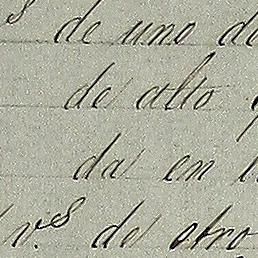 de uno de
de alto
da en
v.s de otro